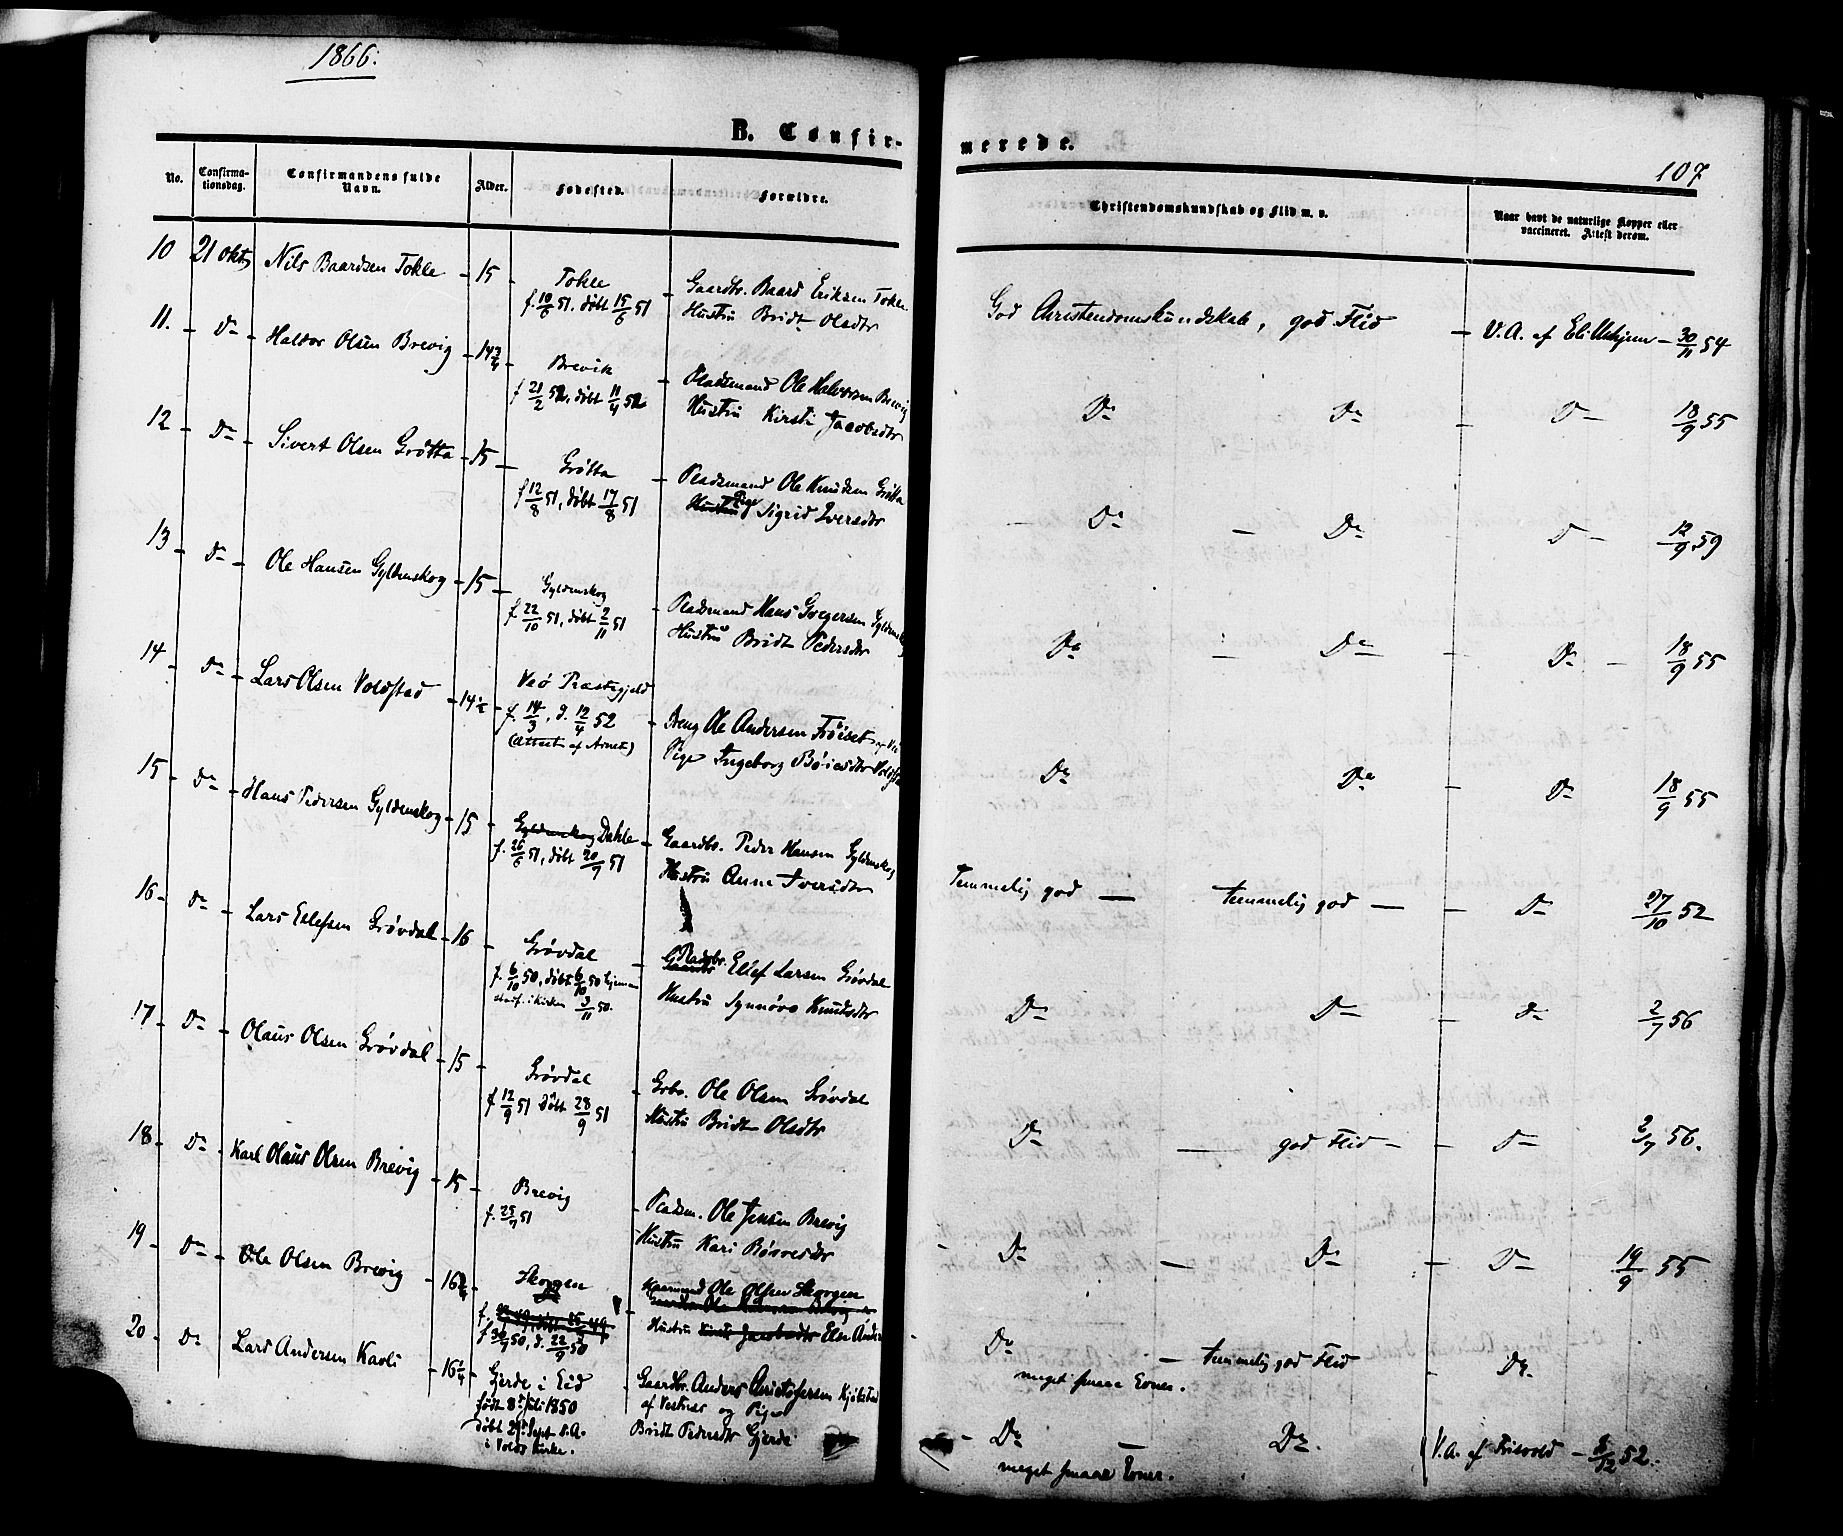 1866:
B. Confirmerede.
107
No.
Confirmationsdag.
Confirmandens fulde Navn.
Alder.
Fødested.
Forældre.
Christendomskundskab og Flid m. v.
Naar havt de naturlige Kopper eller vaccineret. Attest derom.
10 21 Okt. Nils Baardsen Tokle - 15 - Tokle
f. 10/6 51. døbt 15/6 51
Gaardbr. Baard Eriksen Tokle
Hustru Bridt Olsdtr
God Christendomskundskab, god Flid - V.A. af - 30/11 54
11. - Do - Haldor Olsen Brevig - 14 3/4 - Brevik
f 21/2 52, døbt 11/4 52
Pladsmand Ole Halvorsen Brevig
Hustru Kirsti Jacobsdtr
Do Do - D - 18/9 55
12 - Do - Sivert Olsen Grøtta - 15 - Grøtta
f 12/8 51, døbt 17/8 51
Pladsmand Ole Knudsen Grøtta
Hustru Pige Sigrid Iversdtr
- Do - Do D - 12/9 59
13 - Do - Ole Hansen Gyldenskog - 15 - Gyldenskog
f. 22/10 51, døbt 2/11 51
Pladsmand Hans Gregersen Gyldenskog
Hustru Bridt Pedersdtr
Do - Do - Do - 18/9 55
14 - Do - Lars Olsen Voldstad - 14 1/2 - Veø Præstegjeld
f. 14/3, d. 12/4 52
(Attest af Arnet)
Dreng Ole Andersen
Pige Ingeborg
Do Do - Do 18/9 55
15 - Do - Hans Pedersen Gyldenskog - 15 - Gyldenskog Dahle
f. 26/6 51, døbt 20/9 51
Gaardbr. Peder Hansen Gyldenskog
Hustru Anne Iversdtr
Temmelig god - temmelig god - - Do 27/10 52
16 - Do - Lars Ellefsen Grøvdal - 16 - Grøvdal
f. 6/10 50, døbt 6/10 50 hjemme
i Kirken 3/11 50.
Gaardbr Pladsbr. Ellef Larsen Grøvdal
Hustru Synnøve Knudsdtr
Do Do - Do 2/7 56
17 - Do - Olaus Olsen Grøvdal - 15 - Grøvdal
f 12/9 51 døbt 28/9 51
Grbr. Ole Olsen Grøvdal
Hustru Bridt Olsdtr
Do - god Flid - - Do 2/7 56.
18 - Do - Karl Olaus Olsen Brevig - 15 - Brevig
f. 25/7 51
Pladsm. Ole Jensen Brevig
Hustru Kari
- Do - Do - Do 19/9 55
19 - Do - Ole Olsen Brevig - 16 - Skorgen
f 30/7 50, d. 22/9 50
Ole Olsen Skorgen
Hustru Kirsti Jacobsdtr Else
Do - temmelig god Flid - Do.
meget smaa Evner.
20 - Do - Lars Andersen Kavli - 16 1/4 - Gjerde i Eid
født 8de Juli 1850
døbt Sept s.A.
i Volds Kirke.
Gaardbr. Anders Christofersen
af Vestnæs og Pige
Bridt Pedersdtr Gjerde
- Do - Do. V.A. af Frisvold - 8/12 52.
meget smaae Evner.